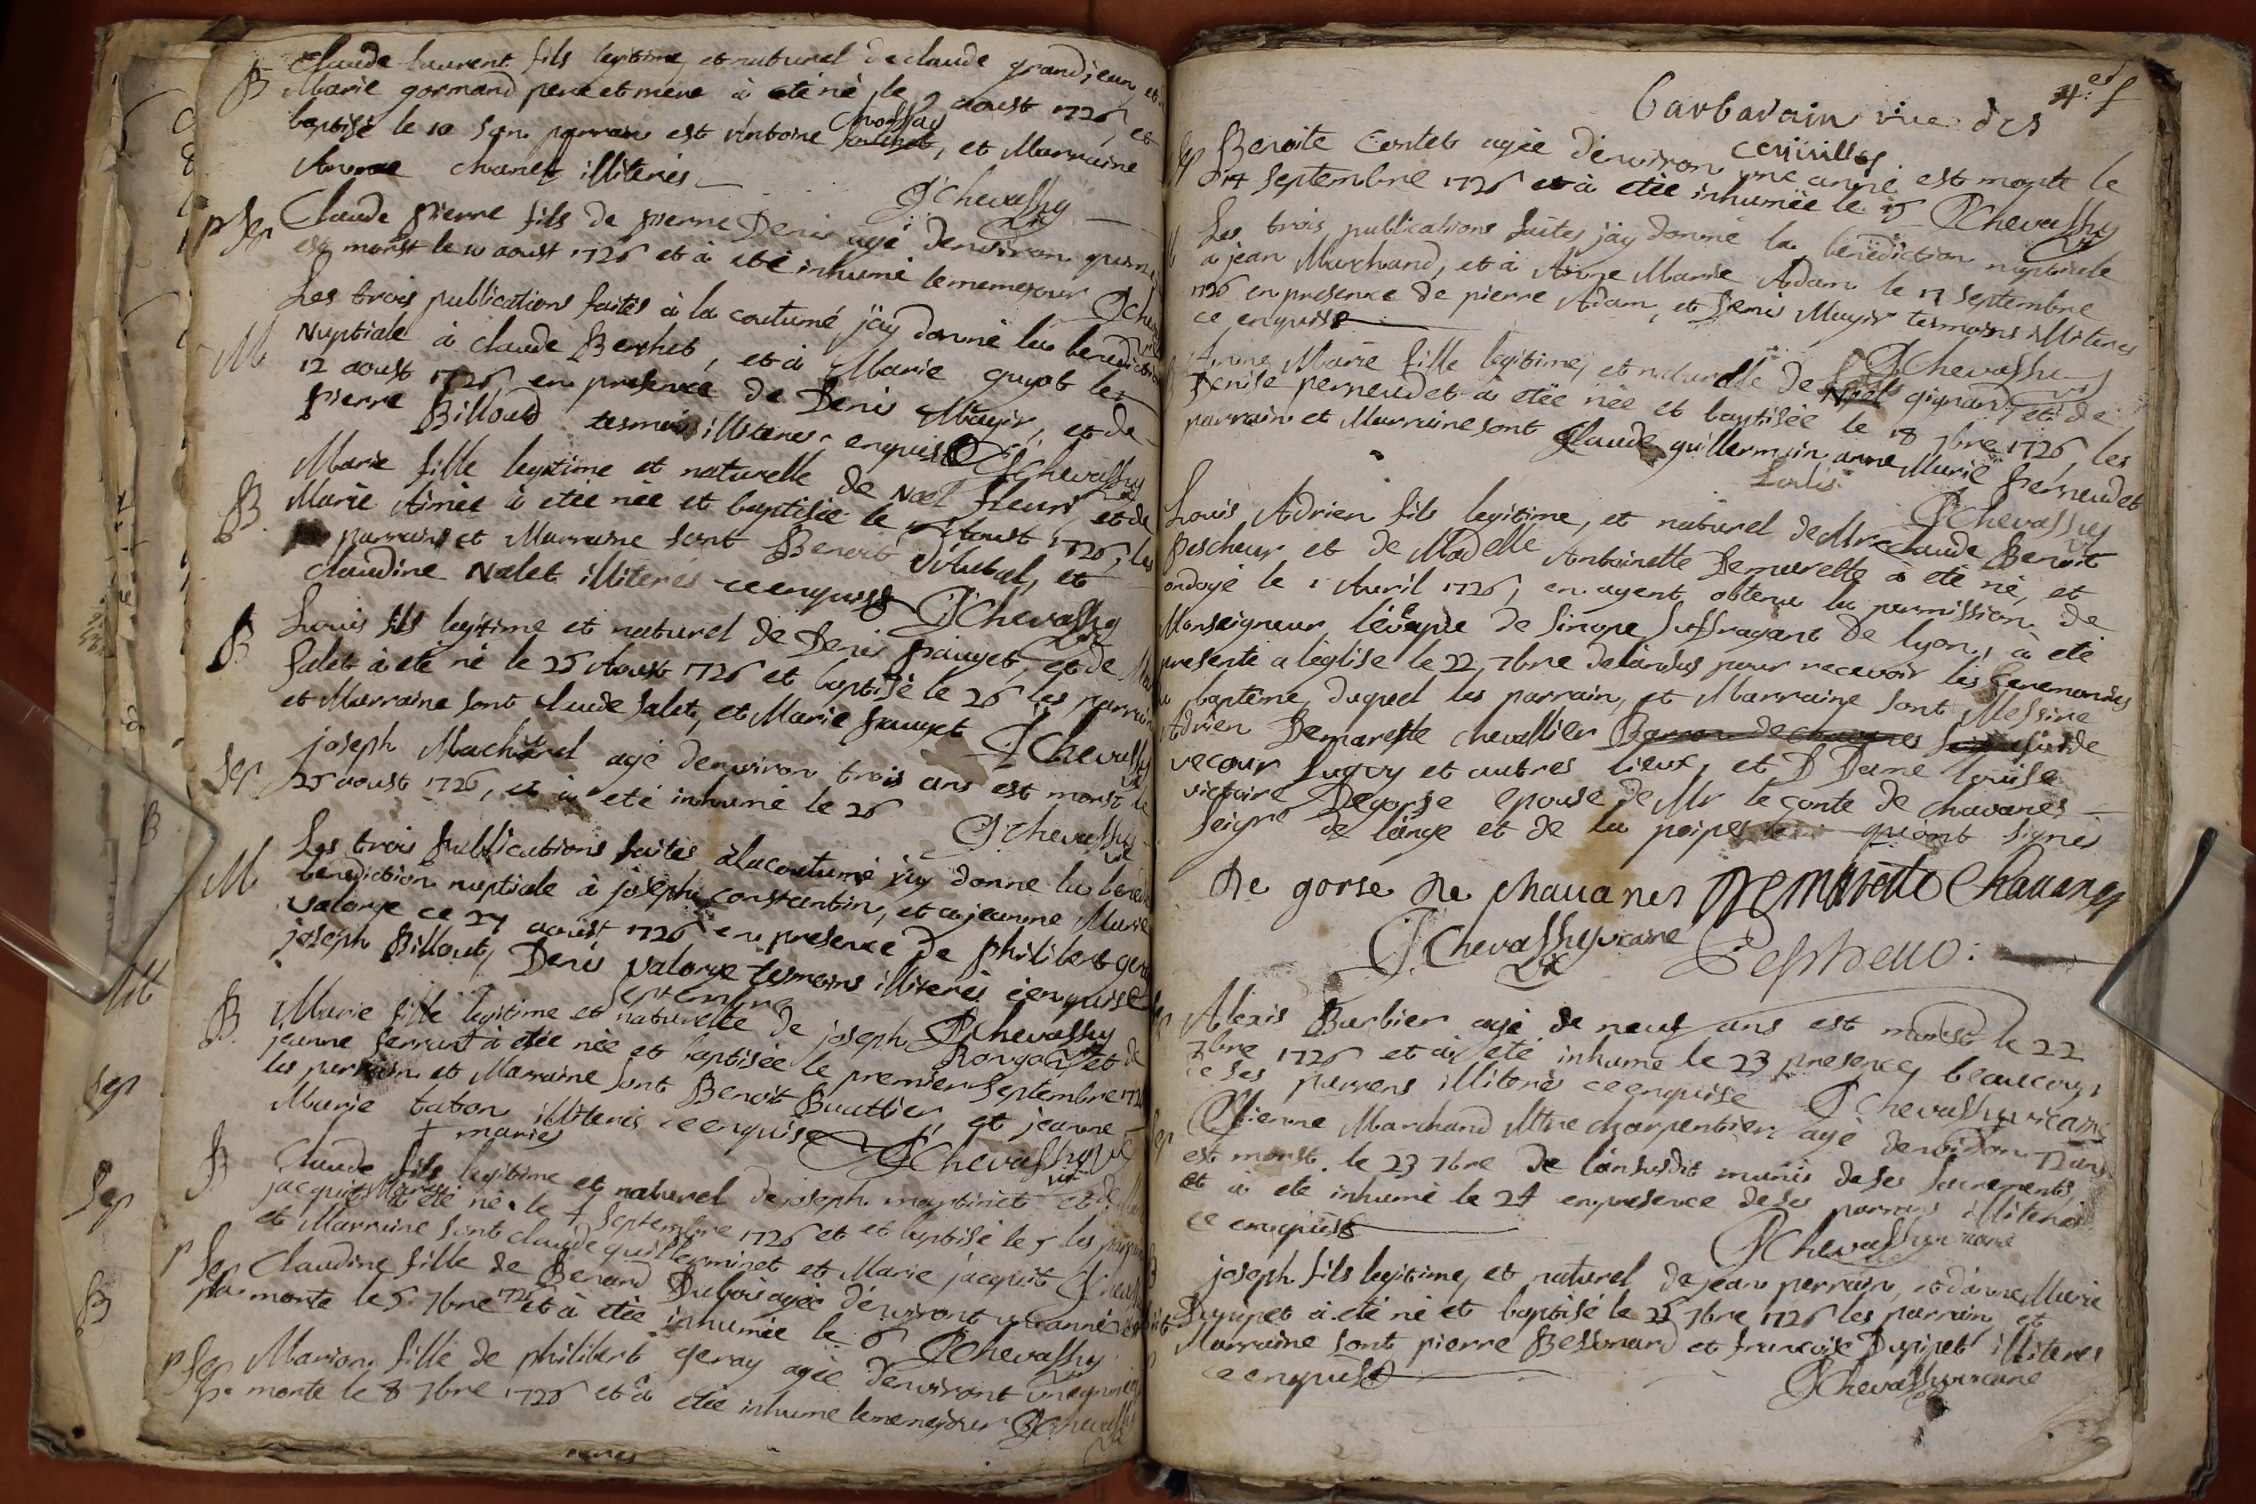 B Claude laurent fils legitime, et naturel de claude grandjean et
Marie gormand pere et mere à eté né le 9 aoust 1726, et
baptisé le 10 son parrain est Antoine et Marraine
Anne chanet illiterés
JChevassuy
P Sep Claude pierre fils de pierre Denis agé denviron
est morst le 10 aoust 1726 et à eté inhumé le meme jour
M Les trois publications faites à la coutumé j'ay donné la benediction
Nuptiale à claude Berthet, et à Marie guyot le
12 aoust 1726 en presence de Denis Mayir, et de
pierre Billoud tesmoins illiteres enquis
JChevassuy
B Marie fille legitime et naturelle de Noel fleuri et de
Marie Aimée à etée née et baptisée le Aoust 1726, les
parrains et Marraine sont Benoit et
claudine Nalet illiterés ce enquis
JChevassuy
B Louis fils legitime et naturel de Denis pauget, et de
Salet à eté né le 25 Aoust 1726 et baptisé le 26 les parrain
et Marraine sont claude Salet, et Marie pauget
JChevassuy
Sep joseph Machurel agé denviron trois ans est morst le
25 aoust 1726, et à eté inhumé le 26
JChevassuy
M Les trois publications faites à la coutumé j'ay donné la
benediction nuptiale à joseph constantin, et a jeanne Marie
Valorge ce 27 aoust 1726 en presence de philibert
joseph Billout, Denis valorge tesmoins illiterés enquis
Septembre
JChevassuy
B Marie fille legitime et naturelle de joseph et de
jeanne ferrant à etée née et baptisée le premier Septembre 172
les parrain et Marraine sont Benoit Buattier, et jeanne
Marie tabon illiterés ce enquis
JChevassuy
mariés
B Claude fils legitime et naturel de joseph martinet et de
jacquit à eté né le 4 Septembre 1726 et baptisé le 5 les
et Marraine sont claude guillerminet et Marie jacquit
P Sep Claudine fille de Benard Dubois agée denviront
morte le 5 7bre 1726 et à etée inhumée le 6 JChevassuy
P Sep Marion fille de philibert geray agée denviront
morte le 8 7bre 1726 et à etée inhume le meme jour
Barbarain rue des
Sep Benoite Contet agée denviron une année est morte le
14 Septembre 1726 et à etée inhumée le 15 JChevassuy
Les trois publications faites j'ay donné la benediction nuptiale
à jean Marchand, et à Anne Marie Adam le 17 Septembre
1726 en presence de pierre Adam, et Denis Mayir tesmoins illiteres
ce enquis
JChevassuy
Anne Marie fille legitime, et naturelle de gignard, et de
Denise perneudet à etée née et baptisée le 18 7bre 1726, les
parrain et Marraine sont Claude guillermin anne Marie perneudet
JChevassuy
Louis Adrien fils legitime, et naturel de Mre claude Benoit
Bescheur et de Madelle Antoinette Demarette à eté né, et
ondoyé le 1 Auril 1726, en ayent obtenu la permission de
Monseigneur l'éveque de Sinope Suffragant de lyon, à eté
presenté a leglise le 22, 7bre de l'an pour recevoir les Ceremonies
du baptême, duquel les parrain, et Marraine sont Messire
Adrien Demareste chevallier
vecour Lugny et autres lieux, et D Dame louise
victoire Degorse epouse de Mr le conte de chavanes
Seigre de lange et de la poipe qui ont signés
De gorse De chavanes Demarette Chavanes
JChevassuy vicaire
Alexis Barbier agé de neuf ans est morst le 22
7bre 1726 et à eté inhumé le 23 presence beaucoup
de ses parrens illiterés ce enquise JChevassuy vicaire
Etienne Marchand Mtre charpentier agé denviron 72 ans
est morst le 23 7bre de l'an susdit munis de ses sacrements
et à eté inhumé le 24 en presence de ses parrens illiterés
ce enquis
JChevassuy vicaire
joseph fils legitime, et naturel de jean perrain, et d'anne Marie
Dupupet à eté né et baptisé le 25 7bre 1726 les parrain et
Marraine sont pierre Bessonard et francoise Dupupet illiteres
ce enquis
JChevassuy vicaire